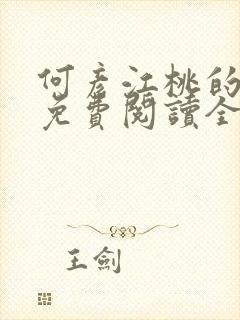 何彥江桃的
免費閱讀全
王劍